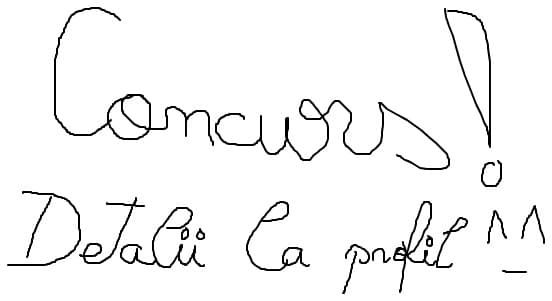 Concurs!
Detalii la profil ^_^